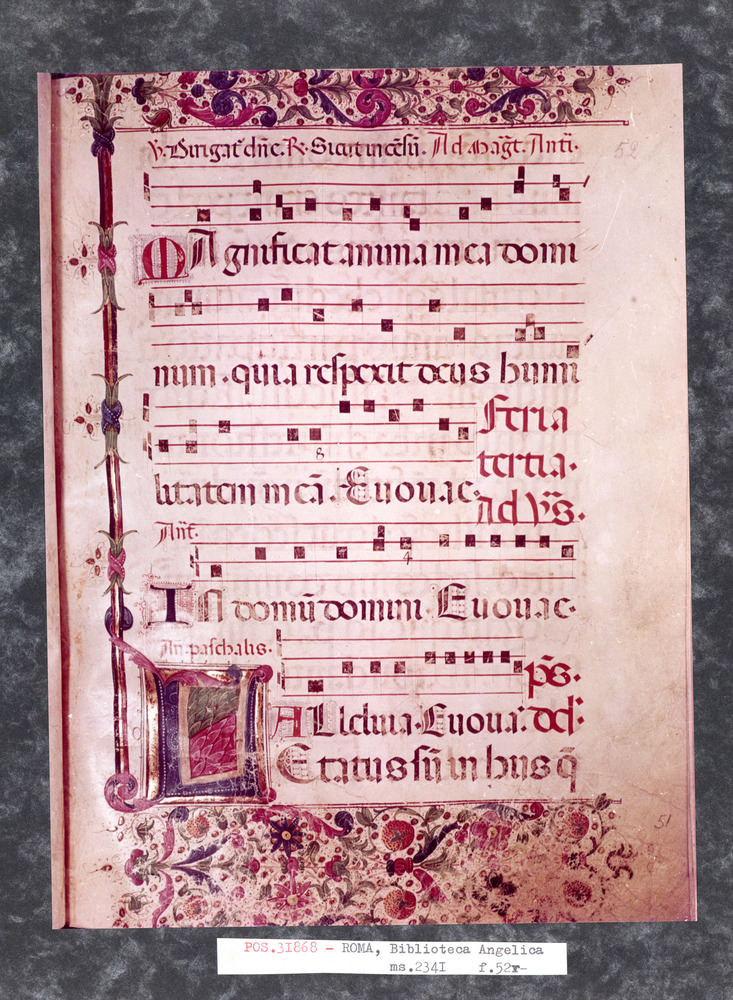 ℣. Dirigat̃ dñe. ℟. Sicut incẽsũ. Ad Mag̃t. Anti.
52
MAgnificat anima mea domi
num. quia respexit deus humi
8
litatem meã. Euouae.
Feria
tertia.
Ad Vs̃.
Añt.
4
IN domũ domini. Euouae.
An. paschalis.
ALleluia. Euoua. ps̃. dd̃:
LEtatus sũ in hiis q̃
51
POS.31868 - ROMA, Biblioteca Angelica
ms.2341 f.52r-